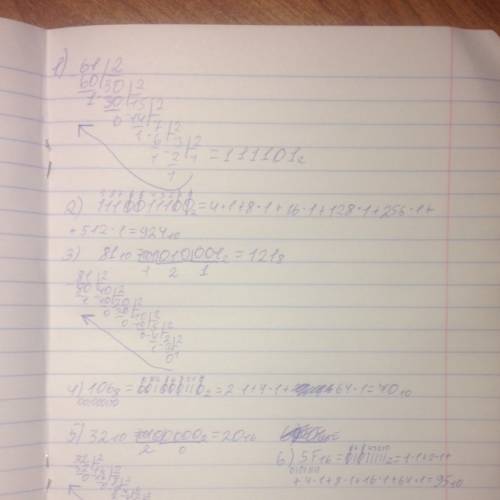 1) 61 | 2
60 30 | 2
1 30 15 | 2
0 14 7 | 2
1 6 3 | 2
1 2 1 = 111101₂
1
2) 1110011100₂ = 4·1+8·1+16·1+128·1+256·1+
+512·1=924₁₀
3) 81₁₀ 1010001₂ = 121₈
1 2 1
81 | 2
80 40 | 2
1 40 20 | 2
0 20 10 | 2
0
4) 106₈ = 001000110₂ = 2·1+4·1+ 64·1=70₁₀
5) 32₁₀ 100000₂ = 20₁₆
2 0
32 | 2
6) 5F₁₆ = 01011111₂ = 1·1+2·1+
+4·1+8·1+16·1+64·1=95₁₀